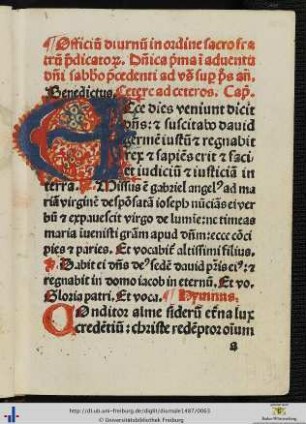 Officiũ diurnũ in ordine sacro fra
trũ p̃dicatoꝝ. Dñica p̃ma ĩ aduentu
dñi sabb̃o p̃cedenti ad vs̃ sup̃ p̃s añ.
Benedictus. Cetere ad ceteros. Cap̃.
Ecce dies veniunt dicit
dñs: ⁊ suscitabo dauid
germẽ iustũ: ⁊ regnabit
rex ⁊ sapiẽs erit ⁊ faci
et iudiciũ ⁊ iusticiã in
terra. Missus ẽ gabriel angelꝰ ad ma
riã virginẽ despõsatã ioseph nũciãs ei ver
bũ ⁊ expauescit virgo de lumie: ne timeas
maria iuenisti grãm apud dñm: ecce cõci
pies ⁊ paries. Et vocabit̃ altissimi filius.
Dabit ei dñs deꝰ sedẽ dauid p̃ris eiꝰ: ⁊
regnabit in domo iacob in eternũ. Et vo.
Gloria patri. Et voca. Hymnus.
Conditor alme siderũ et̃na lux
credẽtiũ: christe redẽptor oĩum
a
http://dl.ub.uni-freiburg.de/diglit/diurnale1497/0003
© Universitätsbibliothek Freiburg
Baden-Württemberg